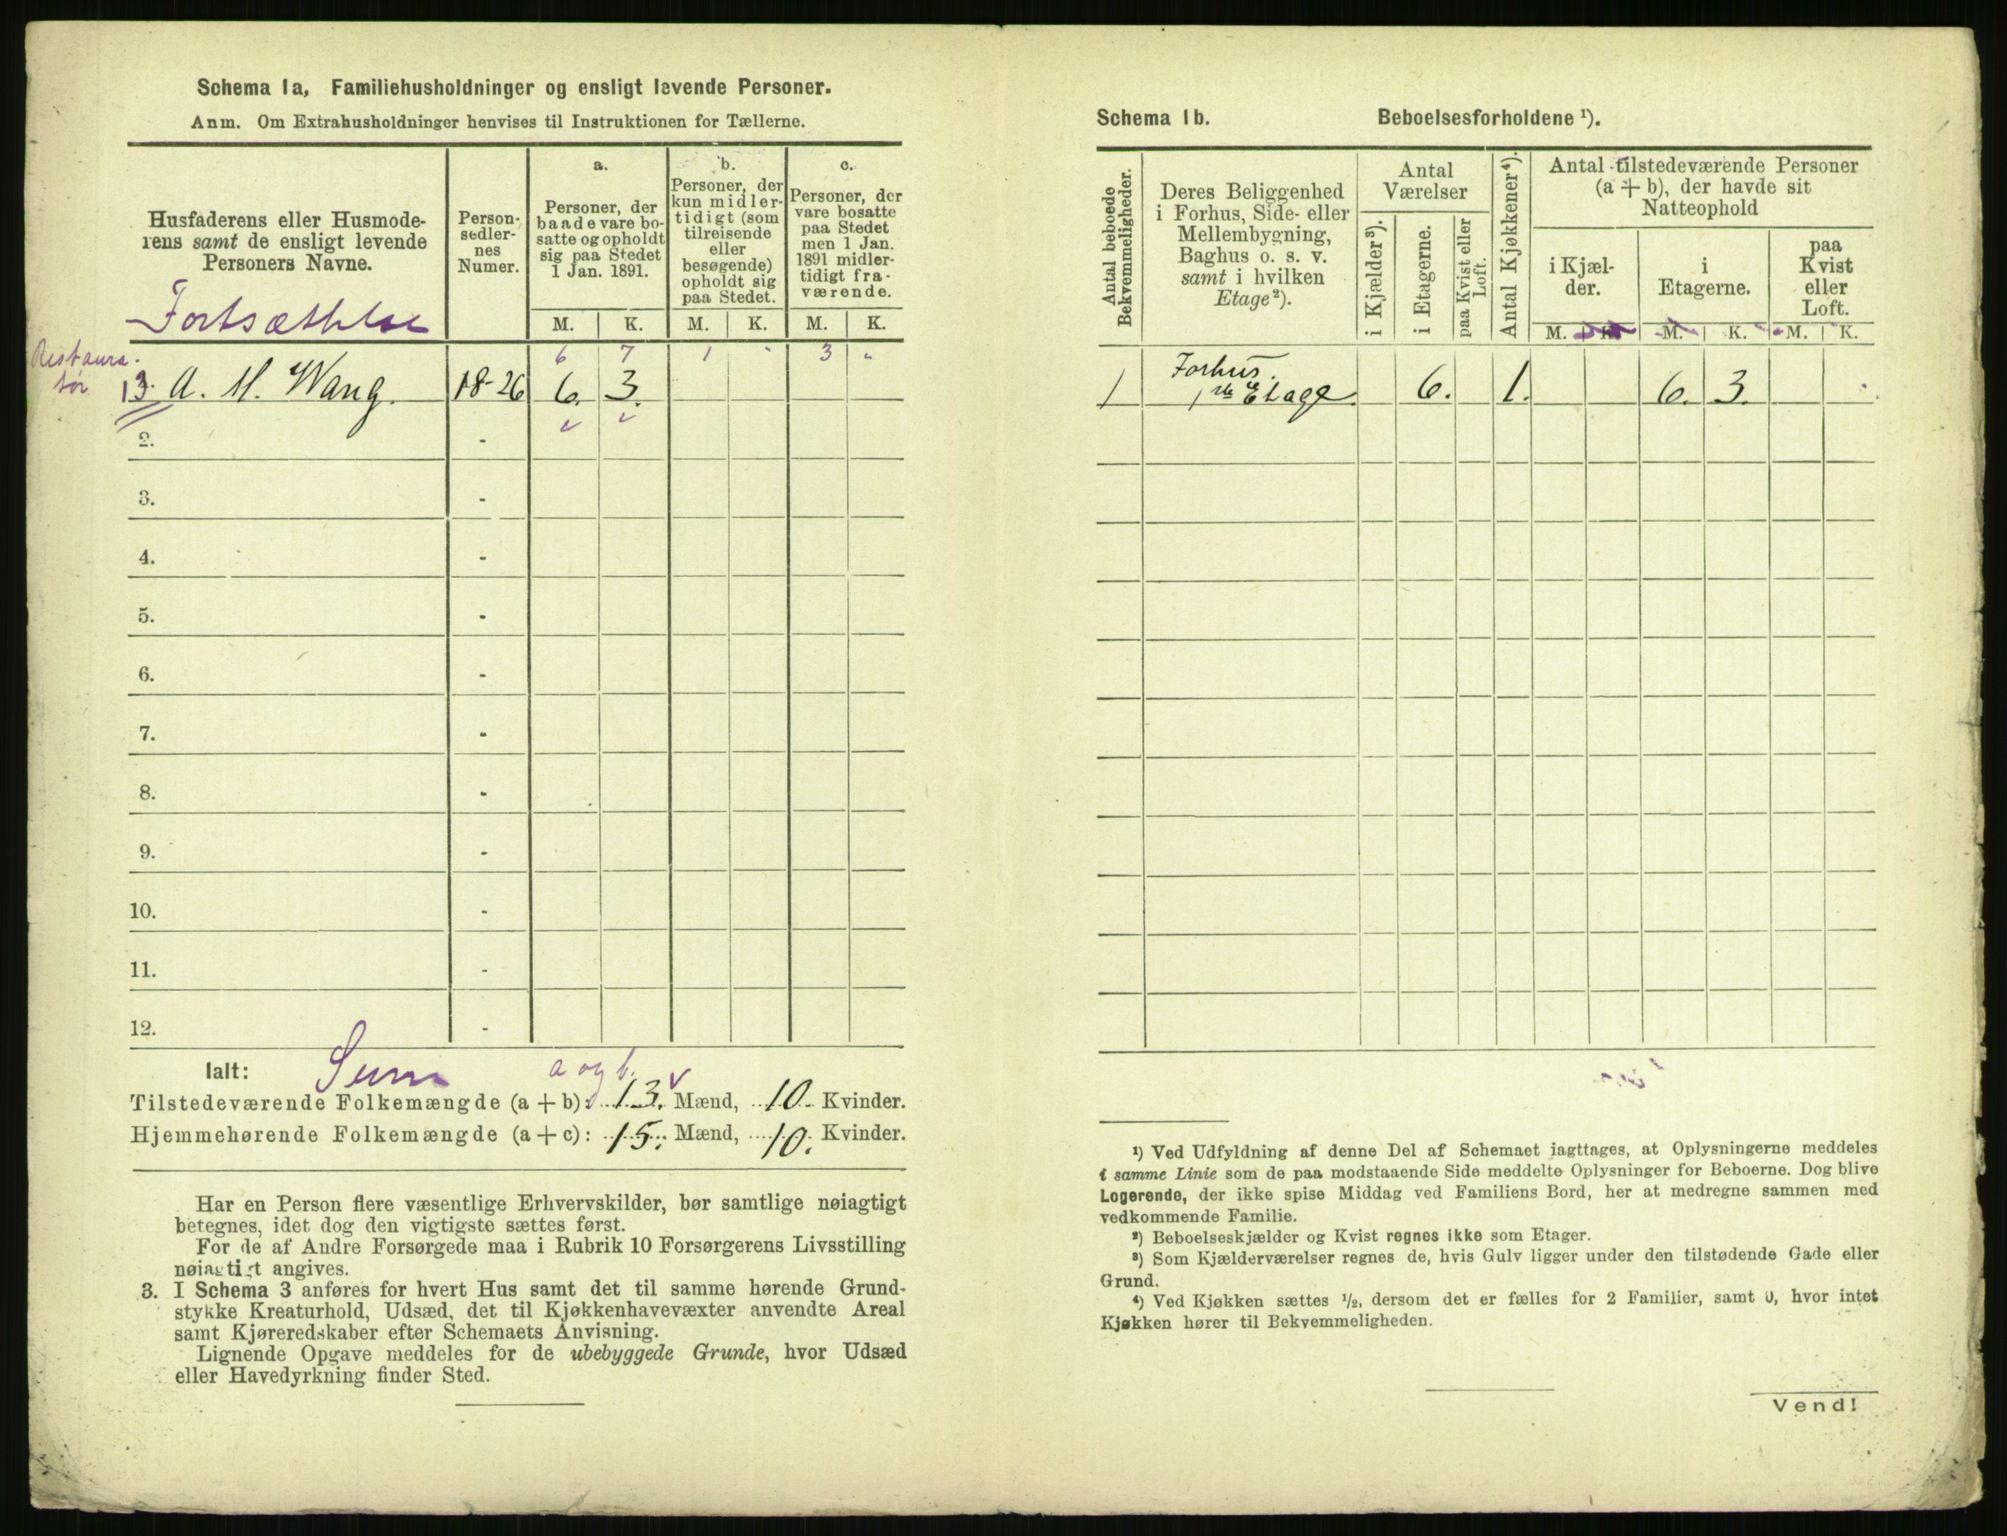 Schema 1a, Familiehusholdninger og ensligt levende Personer.
Anm. Om Extrahusholdninger henvises til Instruktionen for Tællerne.
Husfaderens eller Husmode-
rens samt de ensligt levende
Personers Navne.
Fortsættelse
Person-
sedler-
nes
Numer.
a.
Personer, der
baade vare bo-
satte og opholdt
sig paa Stedet
1 Jan. 1891.
M. K.
b.
Personer, der
kun midler-
tidigt (som
tilreisende
eller
besøgende)
opholdt sig
paa Stedet.
M. K.
c.
Personer, der
vare bosatte
paa Stedet
men 1 Jan.
1891 midler-
tidigt fra-
værende.
M. K.
6 7 1 " 3 "
Restaura-
tør 13. A. M. Wang. 18-26 6. 3.
2. -
3. -
4. -
5. -
6. -
7. -
8. -
9. -
10. -
11. -
12. -
Ialt: Sum a og b.
Tilstedeværende Folkemængde (a + b): 13. Mænd, 10. Kvinder.
Hjemmehørende Folkemængde (a + c): 15. Mænd, 10. Kvinder.
Har en Person flere væsentlige Erhvervskilder, bør samtlige nøiagtigt
betegnes, idet dog den vigtigste sættes først.
For de af Andre Forsørgede maa i Rubrik 10 Forsørgerens Livsstilling
nøiagtigt angives.
3. I Schema 3 anføres for hvert Hus samt det til samme hørende Grund-
stykke Kreaturhold, Udsæd, det til Kjøkkenhavevæxter anvendte Areal
samt Kjøreredskaber efter Schemaets Anvisning.
Lignende Opgave meddeles for de ubebyggede Grunde, hvor Udsæd
eller Havedyrkning finder Sted.
Schema 1b. Beboelsesforholdene ¹).
Antal beboede
Bekvemmeligheder.
Deres Beliggenhed
i Forhus, Side- eller
Mellembygning,
Baghus o. s. v.
samt i hvilken
Etage ²).
Antal
Værelser
i Kjælder ³).
i Etagerne.
paa Kvist eller
Loft.
Antal Kjøkkener ⁴).
Antal tilstedeværende Personer
(a + b), der havde sit
Natteophold
i Kjæl-
der.
i
Etagerne.
paa
Kvist
eller
Loft.
M. K. M. K. M. K.
Forhus.
1 1ste Etage 6. 1. 6. 3.
¹) Ved Udfyldning af denne Del af Schemaet iagttages, at Oplysningerne meddeles
i samme Linie som de paa modstaaende Side meddelte Oplysninger for Beboerne. Dog blive
Logerende, der ikke spise Middag ved Familiens Bord, her at medregne sammen med
vedkommende Familie.
²) Beboelseskjælder og Kvist regnes ikke som Etager.
³) Som Kjælderværelser regnes de, hvis Gulv ligger under den tilstødende Gade eller
Grund.
⁴) Ved Kjøkken sættes ½, dersom det er fælles for 2 Familier, samt 0, hvor intet
Kjøkken hører til Bekvemmeligheden.
Vend!